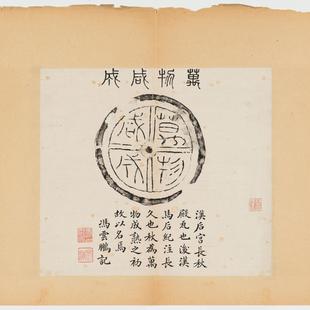 萬物咸成
萬物咸成
漢后宮長秋
殿瓦也後漢
馬后紀注長
久也秋為萬
物成熟之初
故以名焉
馮雲鵬記